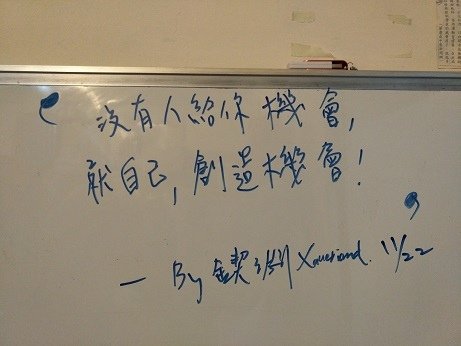 沒有人給你機會,
就自己,創造機會!
— By 11/22